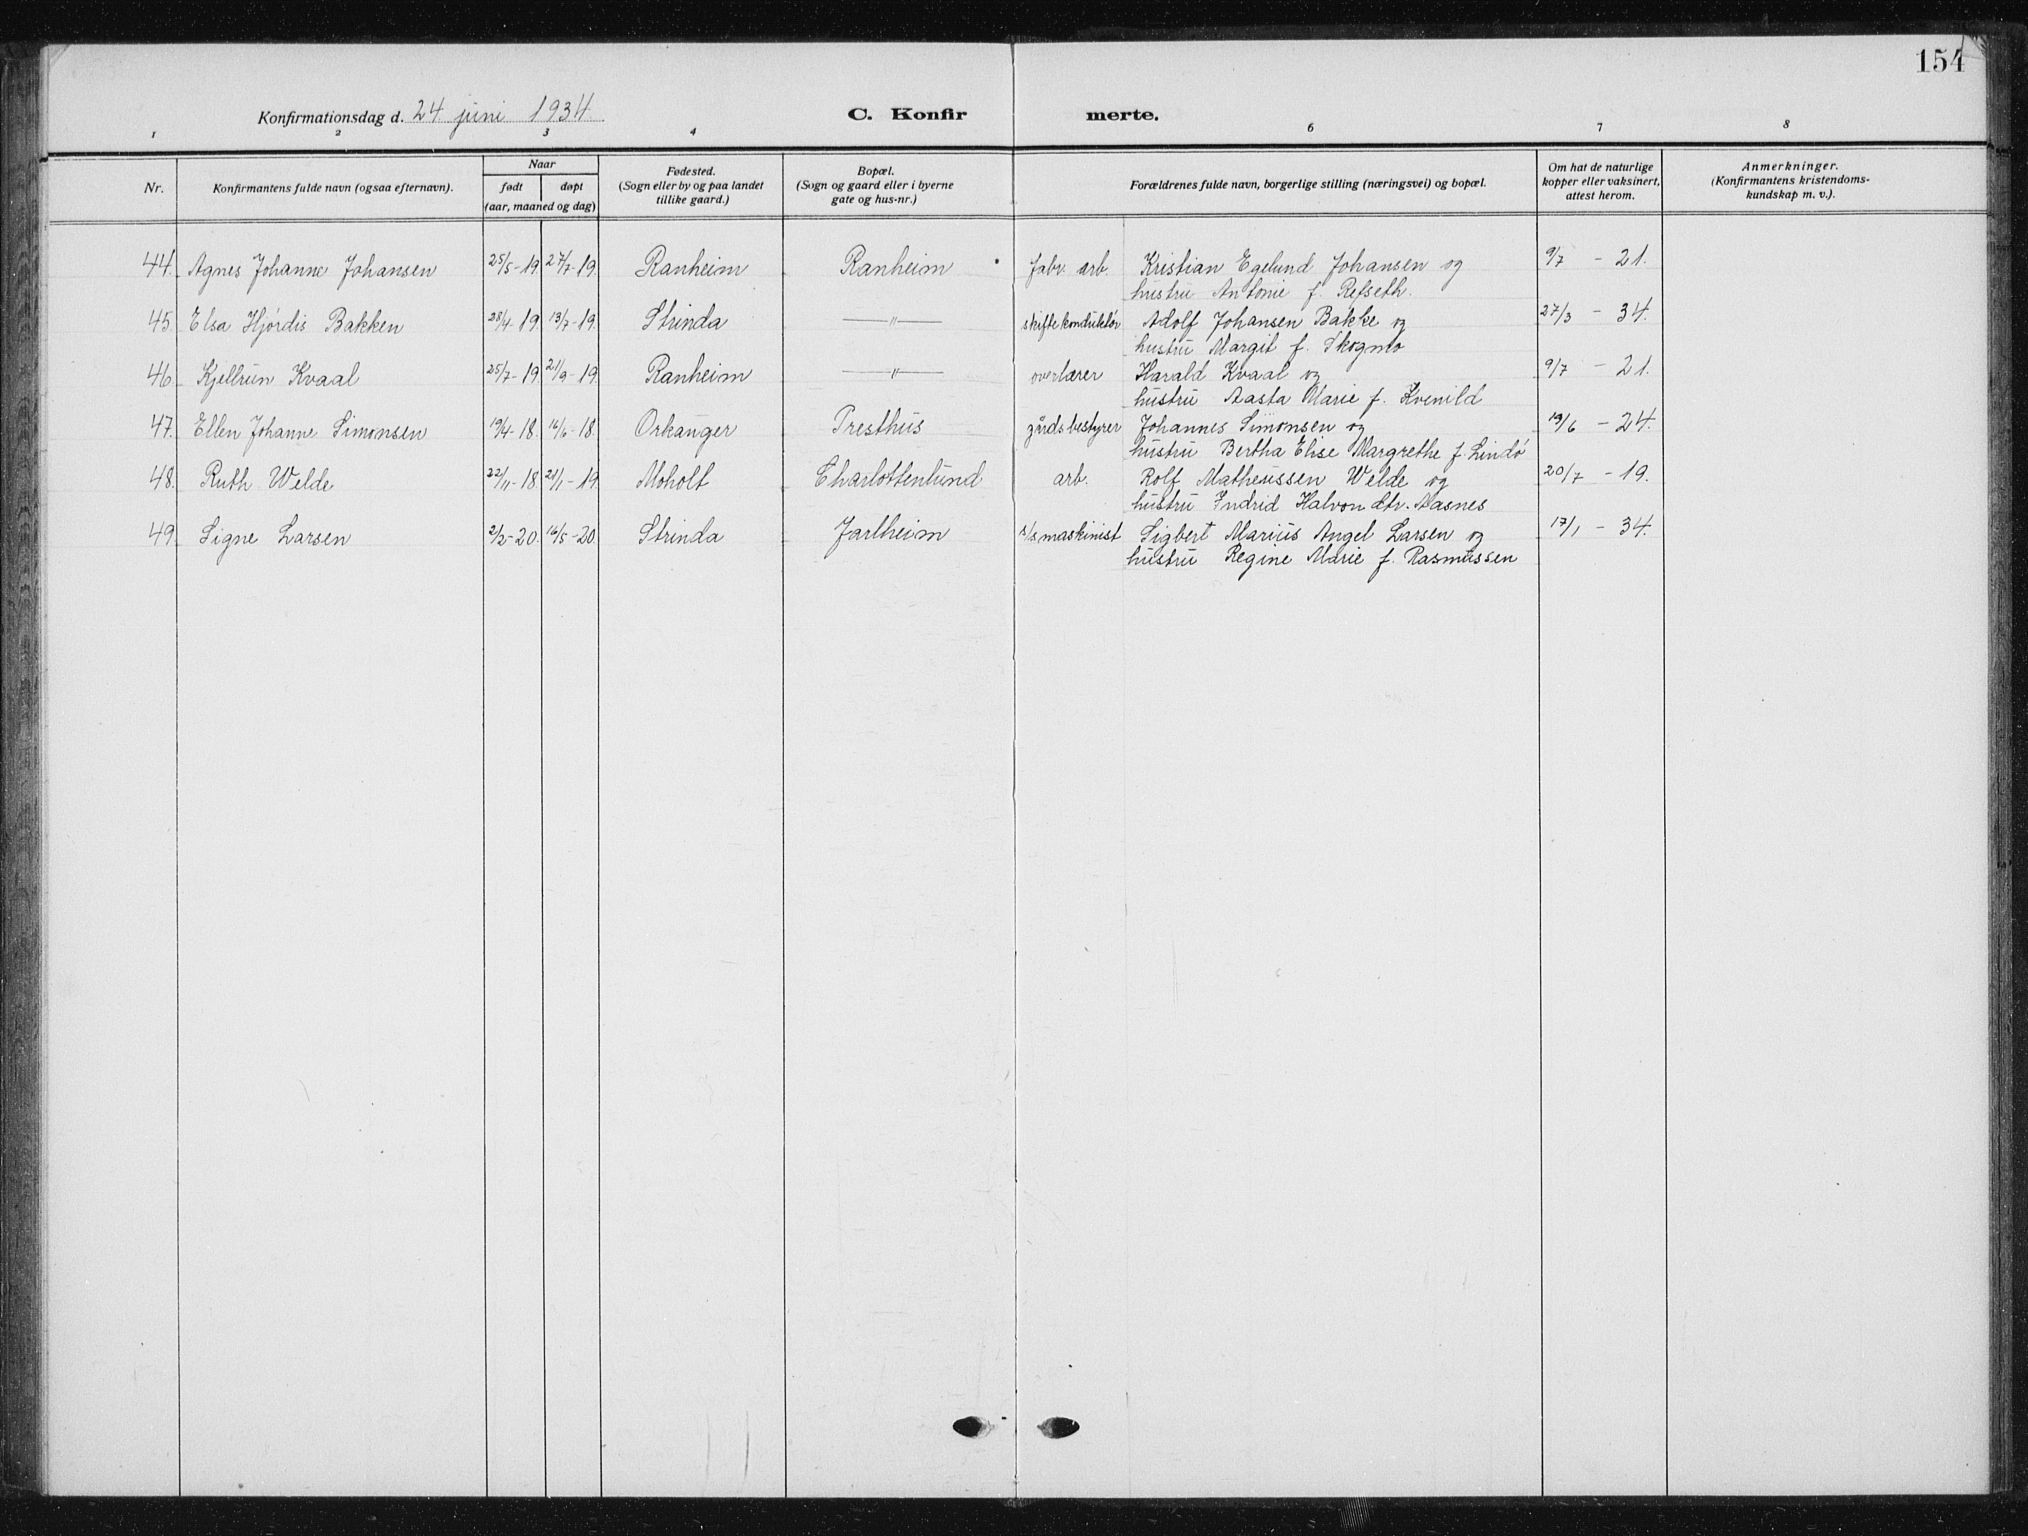 154
Konfirmationsdag d. 24 juni 1934.
C. Konfirmerte.
1 2 3 4 6 7 8
Nr. Konfirmantens fulde navn (ogsaa efternavn). Naar født døpt (aar, maaned og dag) Fødested. (Sogn eller by og paa landet tillike gaard.) Bopæl. (Sogn og gaard eller i byerne gate og hus-nr.) Forældrenes fulde navn, borgerlige stilling (næringsvei) og bopæl. Om hat de naturlige kopper eller vaksinert, attest herom. Anmerkninger. (Konfirmantens kristendoms-kundskap m. v.).
44. Agnes Johanne Johansen 25/5-19. 27/7-19. Ranheim Ranheim fabr. arb. Kristian Egelund Johansen og 9/7 - 21.
hustru Antonie f. Refseth.
45. Elsa Hjördis Bakken 28/4-19. 13/7-19. Strinda —"— skiftekonduktör Adolf Johansen Bakke og 27/3 - 34.
hustru Margit f. Skogmo
46. Kjellrun Kvaal 25/7-19. 21/9-19. Ranheim —"— overlærer Harald Kvaal og 9/7 - 21.
hustru Aasta Marie f. Kvenild
47. Ellen Johanne Simonsen 19/4-18. 16/6-18. Orkanger Presthus gårdsbestyrer Johannes Simonsen og 19/6 - 24.
hustru Bertha Elise Margrethe f. Lindö
48. Ruth Welde 22/11-18. 21/1-19. Moholt Charlottenlund arb. Rolf Matheussen Welde og 20/7 - 19.
hustru Indrid Halvondtr. Aasnes
49. Signe Larsen 2/2-20. 16/5-20. Strinda Jarlheim s/s maskinist Sigbert Marius Angel Larsen og 17/1 - 34.
hustru Regine Marie f. Rasmussen